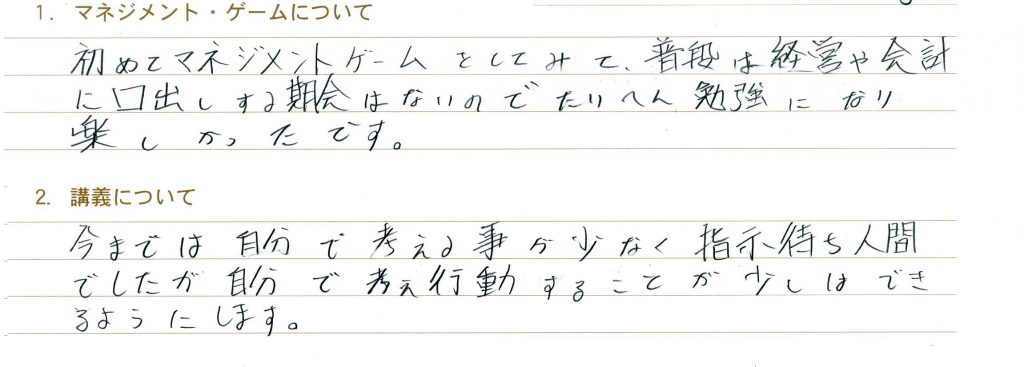 1. マネジメント・ゲームについて
初めてマネジメントゲームをしてみて、普段は経営や会計
に口出しする期会はないのでたいへん勉強になり
楽しかったです。
2. 講義について
今までは自分で考える事が少なく指示待ち人間
でしたが自分で考え行動することが少しはでき
るようにします。